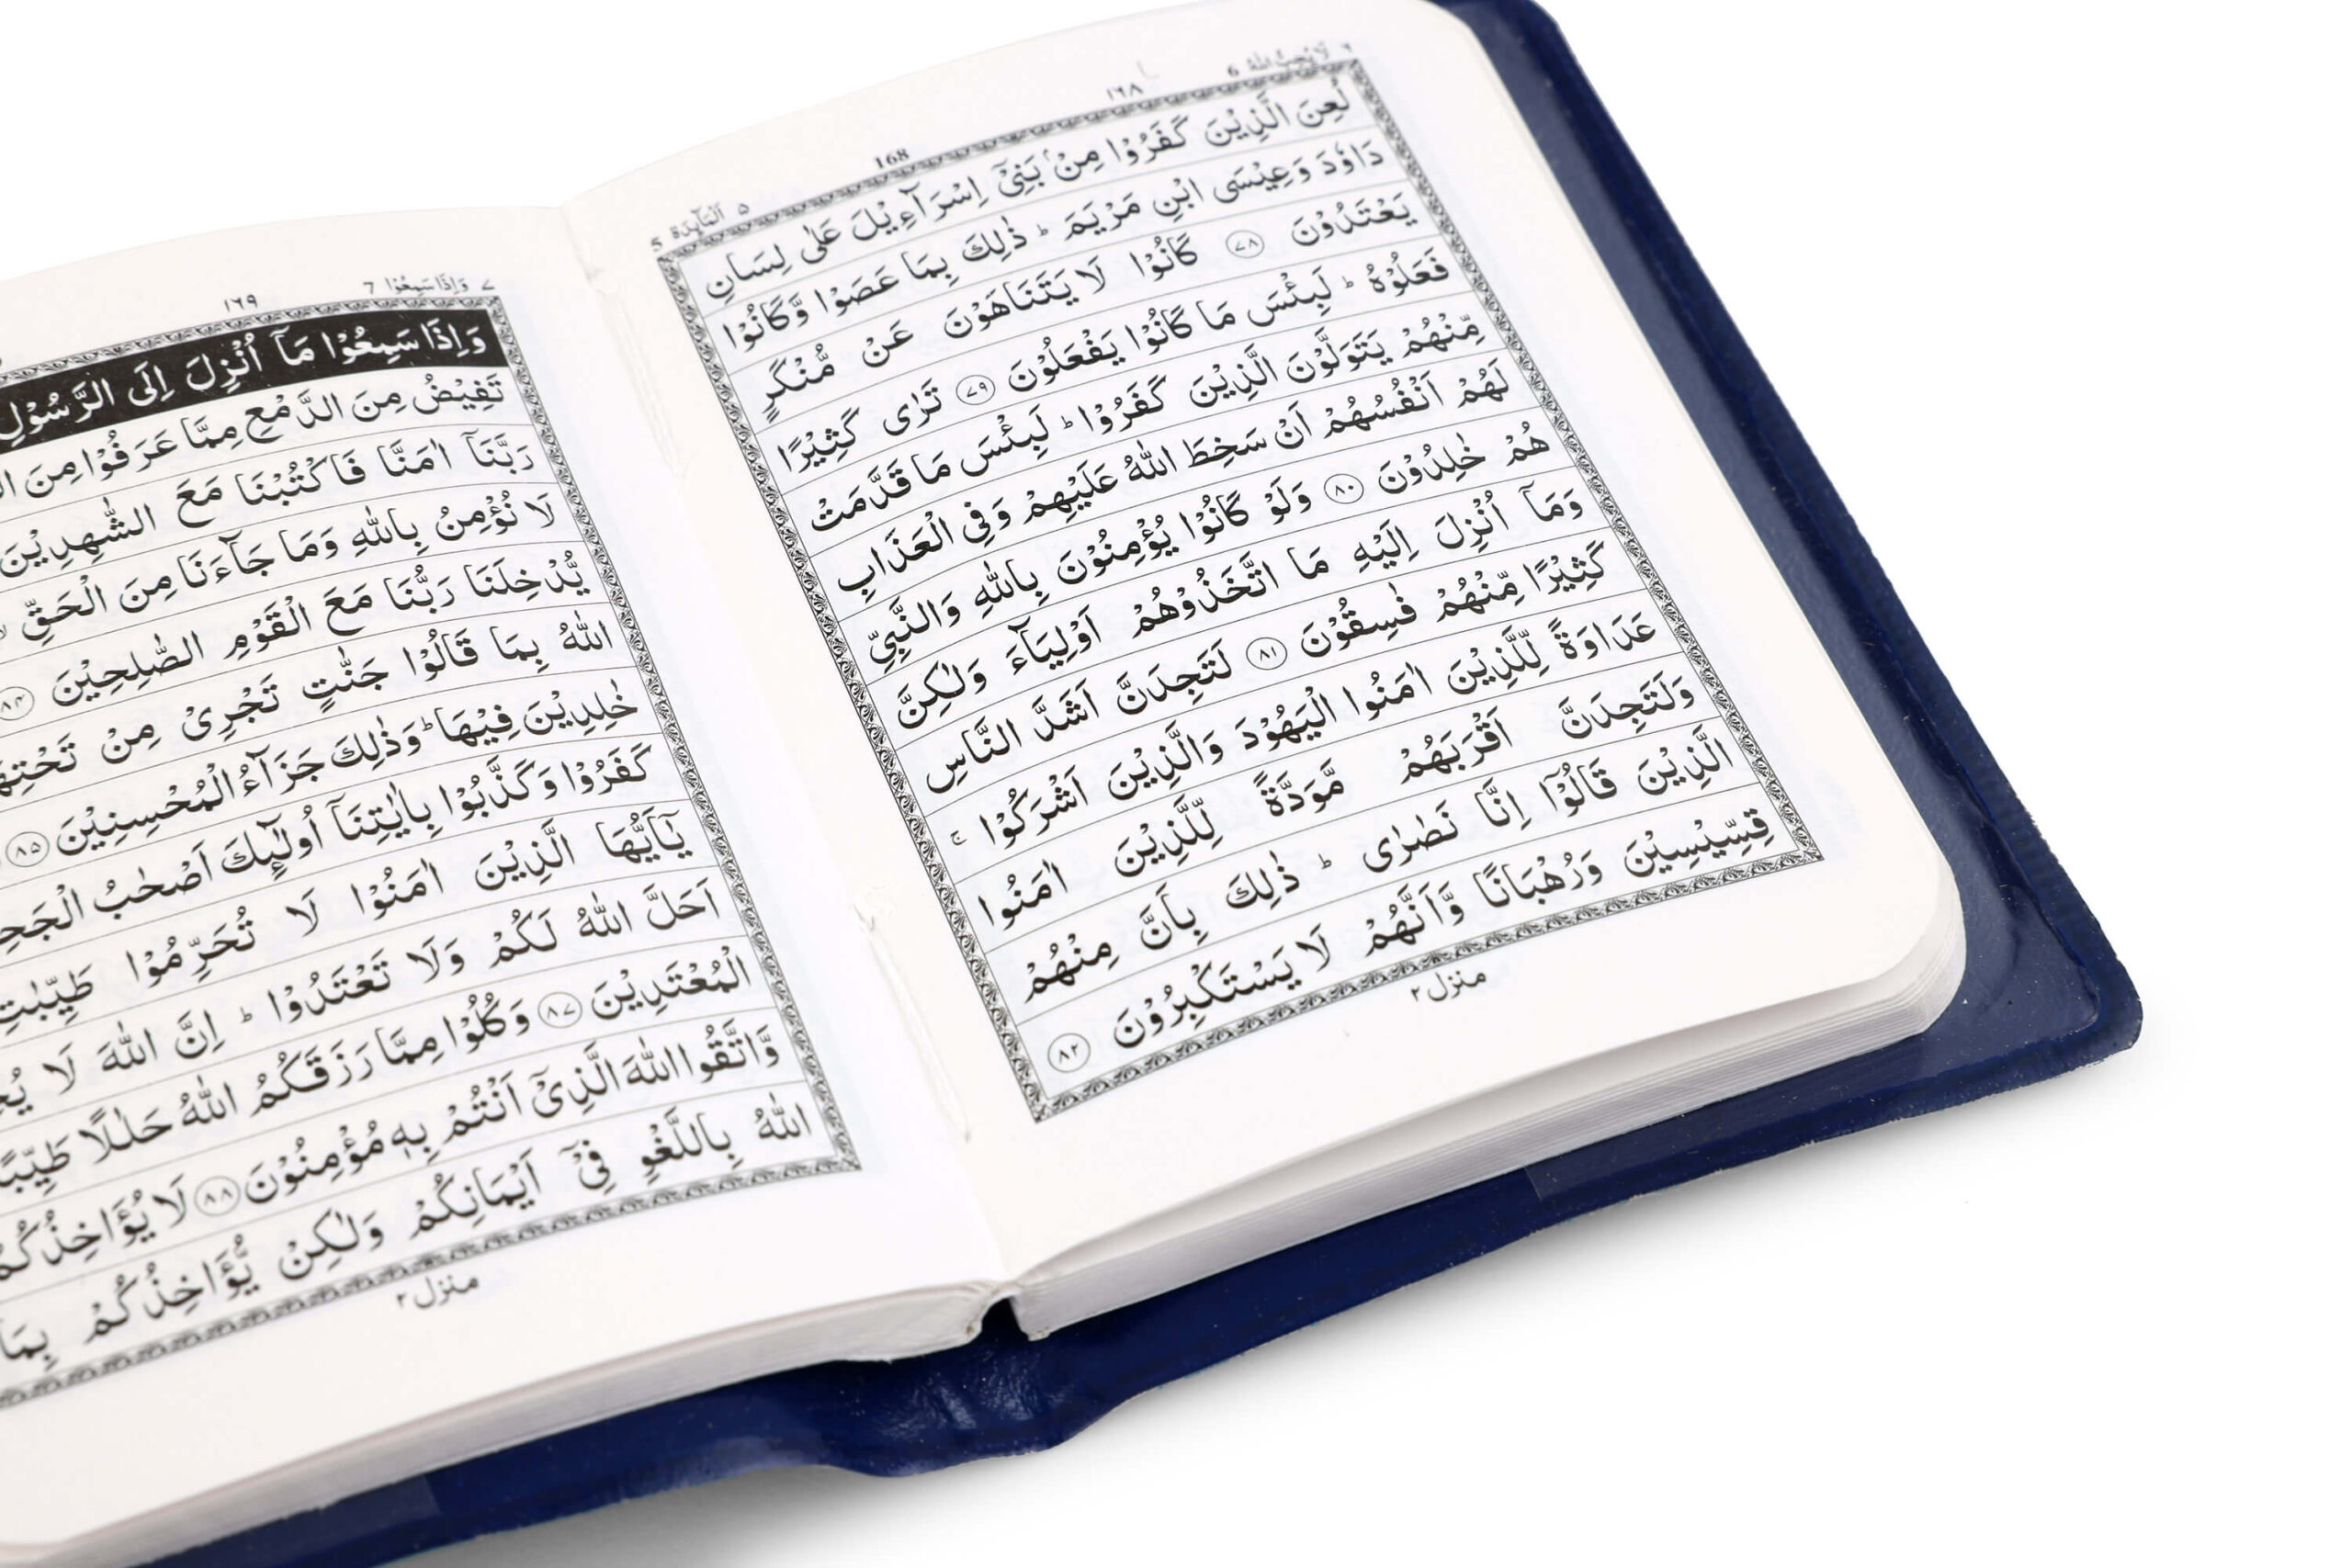 ٦ لَا يُحِبُّ اللّٰهُ 6
١٦٨
168
٥ اَلْمَآئِدَة 5
لُعِنَ الَّذِيْنَ كَفَرُوْا مِنْۢ بَنِيْٓ اِسْرَآءِيْلَ عَلٰى لِسَانِ
دَاوٗدَ وَعِيْسَى ابْنِ مَرْيَمَ ؕ ذٰلِكَ بِمَا عَصَوْا وَّكَانُوْا
يَعْتَدُوْنَ ﴿۷۸﴾ كَانُوْا لَا يَتَنَاهَوْنَ عَنْ مُّنْكَرٍ
فَعَلُوْهُ ؕ لَبِئْسَ مَا كَانُوْا يَفْعَلُوْنَ ﴿۷۹﴾ تَرٰى كَثِيْرًا
مِّنْهُمْ يَتَوَلَّوْنَ الَّذِيْنَ كَفَرُوْا ؕ لَبِئْسَ مَا قَدَّمَتْ
لَهُمْ اَنْفُسُهُمْ اَنْ سَخِطَ اللّٰهُ عَلَيْهِمْ وَفِي الْعَذَابِ
هُمْ خٰلِدُوْنَ ﴿۸۰﴾ وَلَوْ كَانُوْا يُؤْمِنُوْنَ بِاللّٰهِ وَالنَّبِيِّ
وَمَآ اُنْزِلَ اِلَيْهِ مَا اتَّخَذُوْهُمْ اَوْلِيَآءَ وَلٰكِنَّ
كَثِيْرًا مِّنْهُمْ فٰسِقُوْنَ ﴿۸۱﴾ لَتَجِدَنَّ اَشَدَّ النَّاسِ
عَدَاوَةً لِّلَّذِيْنَ اٰمَنُوا الْيَهُوْدَ وَالَّذِيْنَ اَشْرَكُوْا ۚ
وَلَتَجِدَنَّ اَقْرَبَهُمْ مَّوَدَّةً لِّلَّذِيْنَ اٰمَنُوا
الَّذِيْنَ قَالُوْٓا اِنَّا نَصٰرٰى ؕ ذٰلِكَ بِاَنَّ مِنْهُمْ
قِسِّيْسِيْنَ وَرُهْبَانًا وَّاَنَّهُمْ لَا يَسْتَكْبِرُوْنَ ﴿۸۲﴾
منزل ٢
٧ وَاِذَا سَمِعُوْا 7
١٦٩
وَاِذَا سَمِعُوْا مَآ اُنْزِلَ اِلَى الرَّسُوْلِ
تَفِيْضُ مِنَ الدَّمْعِ مِمَّا عَرَفُوْا مِنَ
رَبَّنَآ اٰمَنَّا فَاكْتُبْنَا مَعَ الشّٰهِدِيْنَ
لَا نُؤْمِنُ بِاللّٰهِ وَمَا جَآءَنَا مِنَ الْحَقِّ ۙ
يُّدْخِلَنَا رَبُّنَا مَعَ الْقَوْمِ الصّٰلِحِيْنَ ﴿۸۴﴾
اللّٰهُ بِمَا قَالُوْا جَنّٰتٍ تَجْرِيْ مِنْ
خٰلِدِيْنَ فِيْهَا ؕ وَذٰلِكَ جَزَآءُ الْمُحْسِنِيْنَ ﴿۸۵﴾
كَفَرُوْا وَكَذَّبُوْا بِاٰيٰتِنَآ اُولٰٓئِكَ اَصْحٰبُ
يٰٓاَيُّهَا الَّذِيْنَ اٰمَنُوْا لَا تُحَرِّمُوْا طَيِّبٰتِ
اَحَلَّ اللّٰهُ لَكُمْ وَلَا تَعْتَدُوْا ؕ اِنَّ اللّٰهَ لَا
الْمُعْتَدِيْنَ ﴿۸۷﴾ وَكُلُوْا مِمَّا رَزَقَكُمُ اللّٰهُ حَلٰلًا طَيِّبًا
وَّاتَّقُوا اللّٰهَ الَّذِيْٓ اَنْتُمْ بِهٖ مُؤْمِنُوْنَ ﴿۸۸﴾ لَا يُؤَاخِذُكُمُ
اللّٰهُ بِاللَّغْوِ فِيْٓ اَيْمَانِكُمْ وَلٰكِنْ يُّؤَاخِذُكُمْ بِمَا
منزل ٢